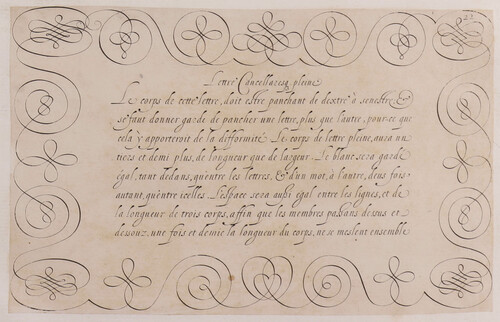 Lettre Cancellaresq pleine
Le corps de cette lettre, doit estre panchant de dextre à senestre, &
se faut donner garde de pancher une lettre, plus que l'autre, pour ce que
cela y apporteroit de la difformité. Le corps de lettre pleine, aura un
tiers et demi plus, de longueur que de largeur. Le blanc sera gardé
égal, tant dedans, qu'entre les lettres, & d'un mot, à l'autre, deux fois
autant, qu'entre icelles. L'espace sera aussi égal entre les lignes, et de
la longueur de trois corps, affin que les membres passans dessus et
dessouz, une fois et demie la longueur du corps, ne se meslent ensemble